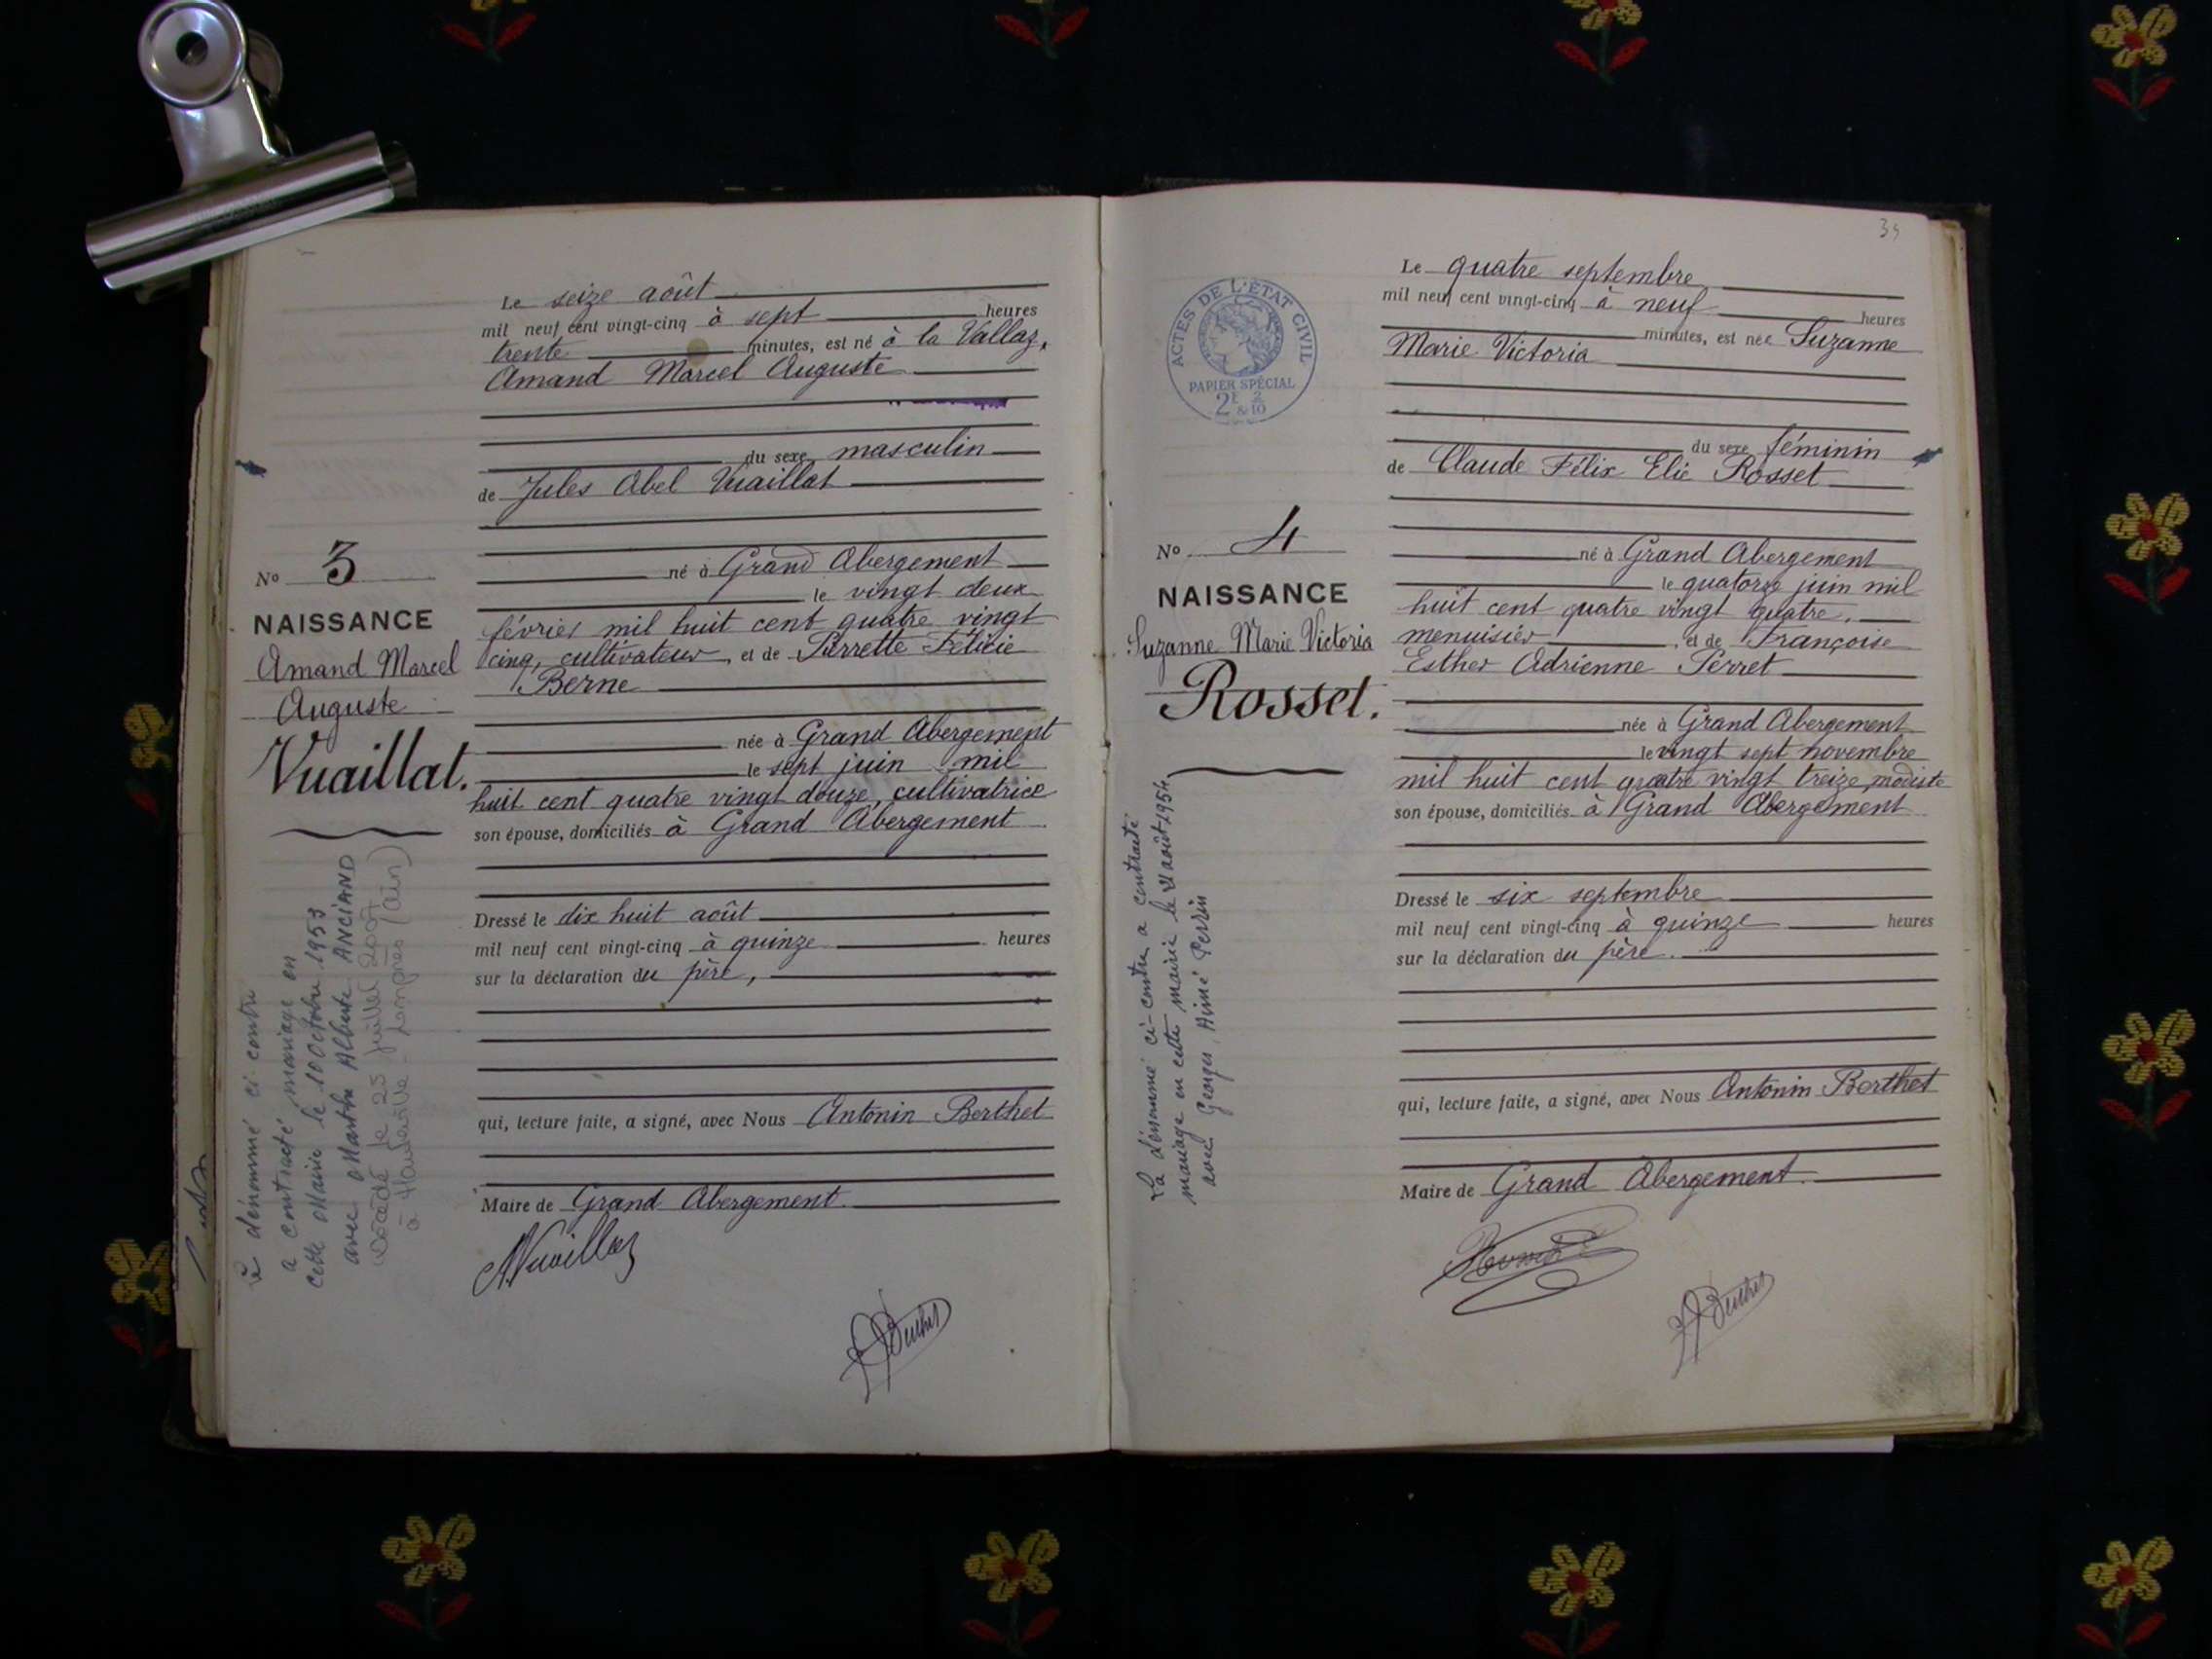 Le seize août
mil neuf cent vingt-cinq à sept heures
trente minutes, est né à la Vallaz,
Amand Marcel Auguste
du sexe masculin
de Jules Abel Vuaillat
né à Grand Abergement
le vingt deux
février mil huit cent quatre vingt
cinq, cultivateur, et de Perrette Félicie
Berne
née à Grand Abergement
le sept juin mil
huit cent quatre vingt douze, cultivatrice
son épouse, domiciliés à Grand Abergement
Dressé le dix huit août
mil neuf cent vingt-cinq à quinze heures
sur la déclaration du père,
qui, lecture faite, a signé, avec Nous Antonin Berthet
Maire de Grand Abergement
No 3
NAISSANCE
Amand Marcel
Auguste
Vuaillat.
Le dénommé ci-contre
a contracté mariage en
cette Mairie le 10 Octobre 1953
avec Marthe Alberte ANCIAND
Décédé le 23 juillet 2007
à Hauteville-Lompnes (Ain)
34
ACTES DE L'ÉTAT CIVIL
PAPIER SPÉCIAL
2F & 2/10
No 4
NAISSANCE
Suzanne Marie Victoria
Rosset.
La dénommée ci-contre a contracté
mariage en cette mairie le 21 août 1954
avec Georges, Aimé Perrin
Le quatre septembre
mil neuf cent vingt-cinq à neuf heures
minutes, est née Suzanne
Marie Victoria
du sexe féminin
de Claude Félix Elie Rosset
né à Grand Abergement
le quatorze juin mil
huit cent quatre vingt quatre,
menuisier, et de Françoise
Esther Adrienne Perret
née à Grand Abergement
le vingt sept novembre
mil huit cent quatre vingt treize, modiste
son épouse, domiciliés à Grand Abergement
Dressé le six septembre
mil neuf cent vingt-cinq à quinze heures
sur la déclaration du père.
qui, lecture faite, a signé, avec Nous Antonin Berthet
Maire de Grand Abergement.